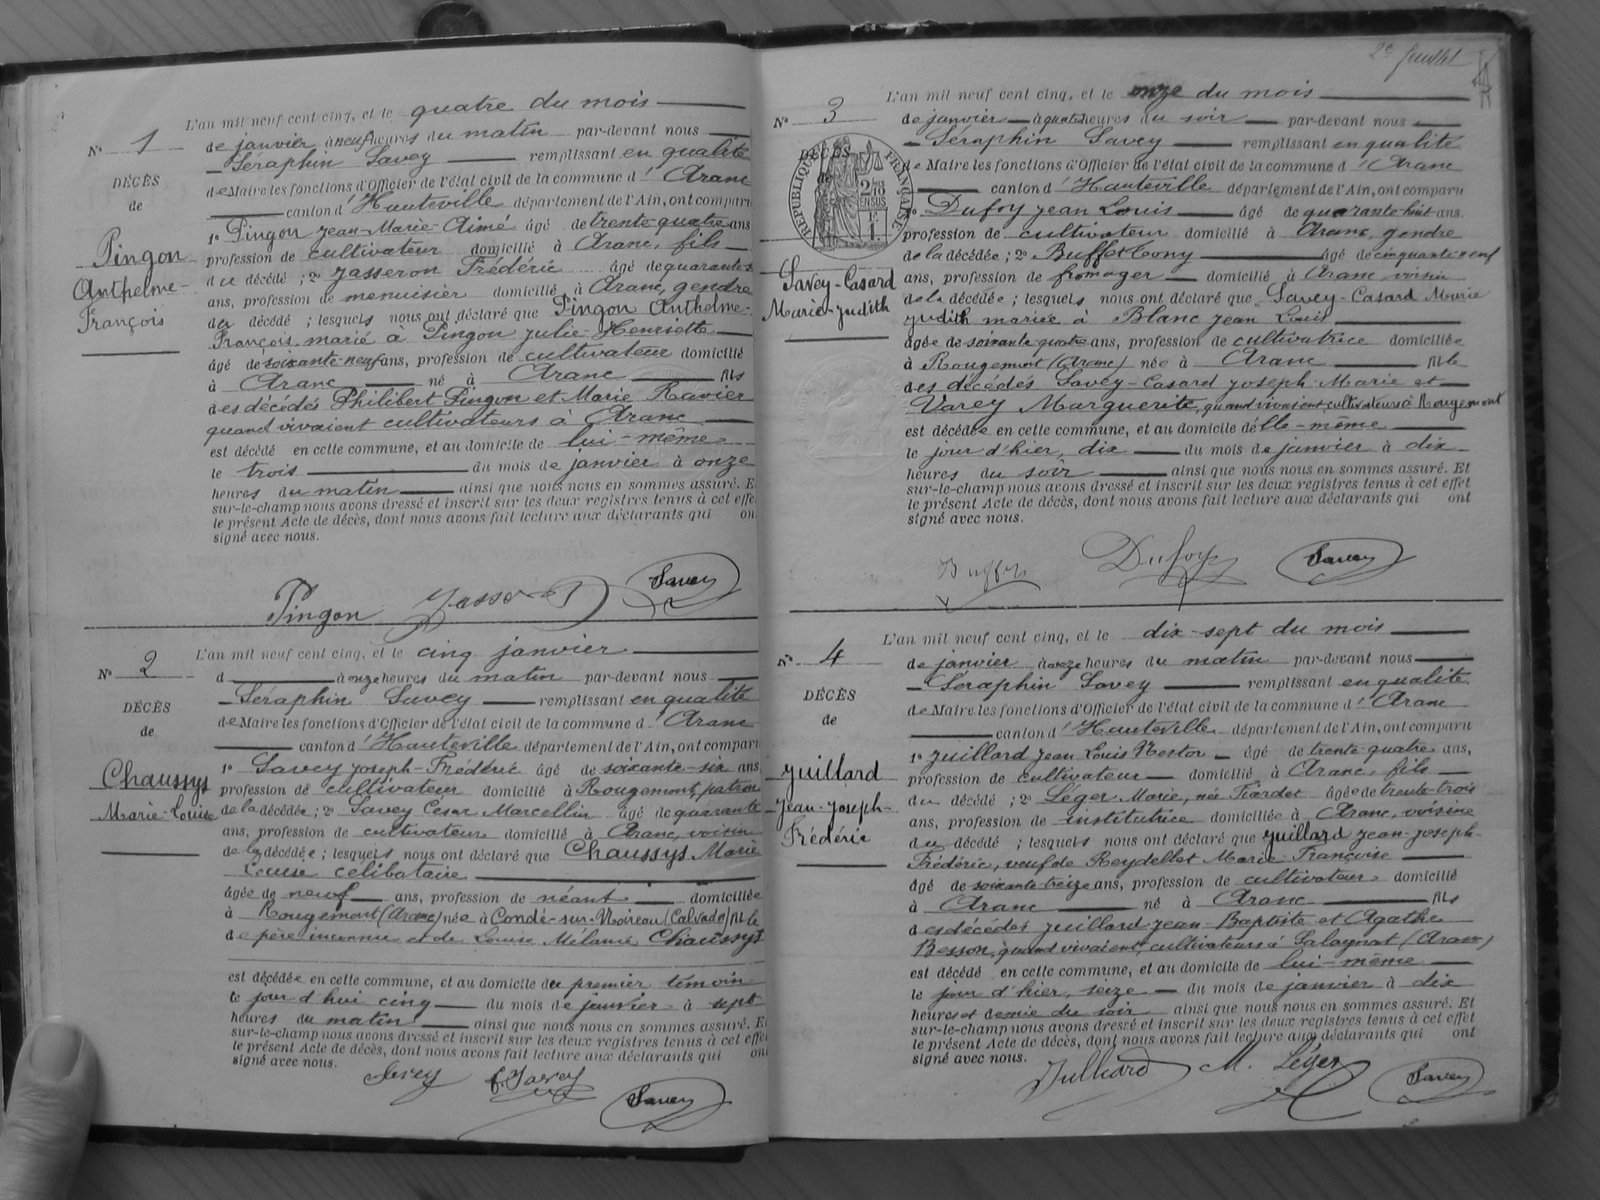 L'an mil neuf cent cinq, et le quatre du mois
de janvier à neuf heures du matin par-devant nous
Nº 1
Séraphin Savey remplissant en qualité
DÉCÈS
de Maire les fonctions d'Officier de l'état civil de la commune d' Aranc
de
canton d' Hauteville département de l'Ain, ont comparu
1º Pingon Jean-Marie-Aimé âgé de trente-quatre ans
Pingon
Anthelme-
François
profession de cultivateur domicilié à Aranc, fils
du décédé ; 2º Jasseron Frédéric âgé de quarante
ans, profession de menuisier domicilié à Aranc, gendre
du décédé ; lesquels nous ont déclaré que Pingon Anthelme-
François, marié à Pingon Julie-Henriette
âgé de soixante-neuf ans, profession de cultivateur domicilié
à Aranc né à Aranc fils
des décédés Philibert Pingon et Marie Ravier
quand vivaient cultivateurs à Aranc
est décédé en cette commune, et au domicile de lui-même
le trois du mois de janvier à onze
heures du matin ainsi que nous nous en sommes assuré. E
sur-le-champ nous avons dressé et inscrit sur les deux registres tenus à cet effe
le présent Acte de décès, dont nous avons fait lecture aux déclarants qui on
signé avec nous.
Pingon Savey
L'an mil neuf cent cinq, et le cinq janvier
Nº 2
d à onze heures du matin par-devant nous
Séraphin Savey remplissant en qualité
DÉCÈS
de Maire les fonctions d'Officier de l'état civil de la commune d' Aranc
de
canton d' Hauteville département de l'Ain, ont comparu
1º Savey Joseph-Frédéric âgé de soixante-six ans
Chaussys
Marie-Louise
profession de cultivateur domicilié à Rougemont, patron
de la décédée ; 2º Savey Cesar Marcellin âgé de quarante
ans, profession de cultivateur domicilié à Aranc, voisin
de la décédée ; lesquels nous ont déclaré que Chaussys Marie
Louise célibataire
âgée de neuf ans, profession de néant domiciliée
à Rougemont (Aranc) née à Condé-sur-Noireau (Calvados) fille
de père inconnu et de Louise Mélanie Chaussys
est décédée en cette commune, et au domicile du premier témoin
le jour d'hui cinq du mois de janvier à sept
heures du matin ainsi que nous nous en sommes assuré. E
sur-le-champ nous avons dressé et inscrit sur les deux registres tenus à cet effe
le présent Acte de décès, dont nous avons fait lecture aux déclarants qui ont
signé avec nous.
Savey f. Savey Savey
2e feuillet
L'an mil neuf cent cinq, et le onze du mois
Nº 3
de janvier à quatre heures du soir par-devant nous
Séraphin Savey remplissant en qualité
DÉCÈS
de
RÉPUBLIQUE FRANÇAISE
de Maire les fonctions d'Officier de l'état civil de la commune d' Aranc
canton d' Hauteville département de l'Ain, ont comparu
1º Dufoy Jean Louis âgé de quarante-huit ans.
profession de cultivateur domicilié à Aranc, gendre
de la décédée ; 2º Buffet Tony âgé de cinquante-neuf
Savey-Casard
Marie-Judith
ans, profession de fromager domicilié à Aranc voisin
de la décédée ; lesquels nous ont déclaré que Savey-Casard Marie
Judith mariée à Blanc Jean Louis
âgée de soixante quatre ans, profession de cultivatrice domiciliée
à Rougemont (Aranc) née à Aranc fille
des décédés Savey-Casard Joseph-Marie et
Varey Marguerite, quand vivaient cultivateurs à Rougemont
est décédée en cette commune, et au domicile d'elle-même
le jour d'hier, dix du mois de janvier à dix
heures du soir ainsi que nous nous en sommes assuré. Et
sur-le-champ nous avons dressé et inscrit sur les deux registres tenus à cet effet
le présent Acte de décès, dont nous avons fait lecture aux déclarants qui ont
signé avec nous.
Dufoy Savey
L'an mil neuf cent cinq, et le dix-sept du mois
Nº 4
de janvier à onze heures du matin par-devant nous
Séraphin Savey remplissant en qualité
DÉCÈS
de Maire les fonctions d'Officier de l'état civil de la commune d' Aranc
de
canton d' Hauteville département de l'Ain, ont comparu
1º Juillard Jean Louis Nestor âgé de trente-quatre ans,
Juillard
Jean-Joseph-
Frédéric
profession de cultivateur domicilié à Aranc, fils
du décédé ; 2º Léger Marie, née Tiardet âgée de trente-trois
ans, profession de institutrice domiciliée à Aranc, voisine
du décédé ; lesquels nous ont déclaré que Juillard Jean-Joseph-
Frédéric, veuf de Reydellet Marie-Françoise
âgé de soixante-treize ans, profession de cultivateur domicilié
à Aranc né à Aranc fils
des décédés Juillard Jean-Baptiste et Agathe
Besson, quand vivaient, cultivateurs à Salagnat (Aranc)
est décédé en cette commune, et au domicile de lui-même
le jour d'hier, seize du mois de janvier à dix
heures et demie du soir ainsi que nous nous en sommes assuré. Et
sur-le-champ nous avons dressé et inscrit sur les deux registres tenus à cet effet
le présent Acte de décès, dont nous avons fait lecture aux déclarants qui ont
signé avec nous.
Juillard M. Léger Savey